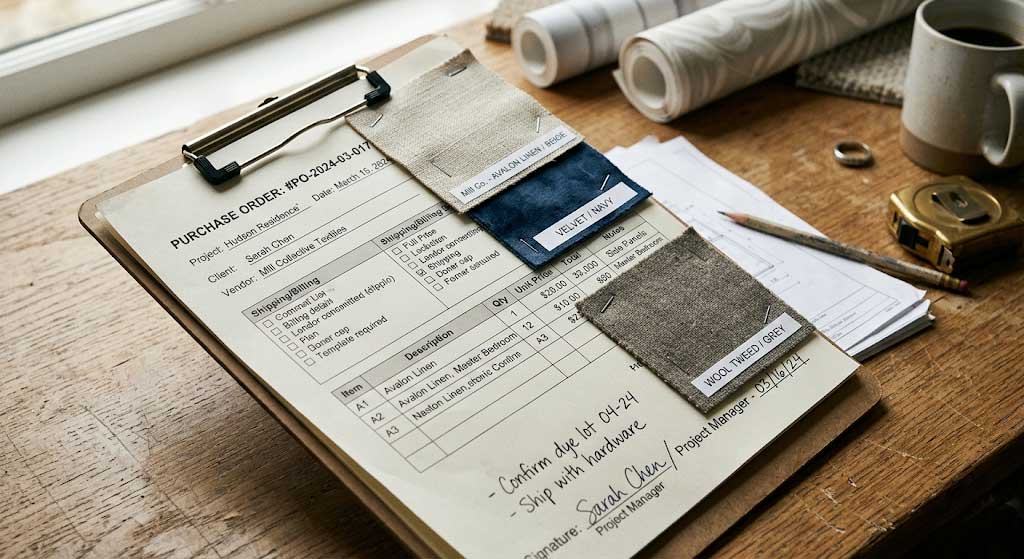 PURCHASE ORDER: #PO-2024-03-017
Date: March 15, 2024
Project: Hudson Residence
Client: Sarah Chen
Vendor: Mill Collective Textiles
Shipping/Billing
Comirait List
Billing details
Londor committed (ellplio)
Plan
Doner cap
Template required
Shipping/Billing
Full Price
Lockation
Londor conenitted
Shipping
Doner cap
Femar
Item Description Qty Unit Price Total Notes
A1 Avalon Linen 1 $20.00 32,000 Side Panels
A2 Avalon Linen, Master Bedroom 12 $10.00 $60 Master Bedroom
A3 Naston Linen, Confirm A3
- Confirm dye lot 04-24
- Ship with hardware
Signature: Sarah Chen / Project Manager - 03/16/24
Project Manager
Mill Co. - AVALON LINEN / BEIGE
VELVET / NAVY
WOOL TWEED / GREY